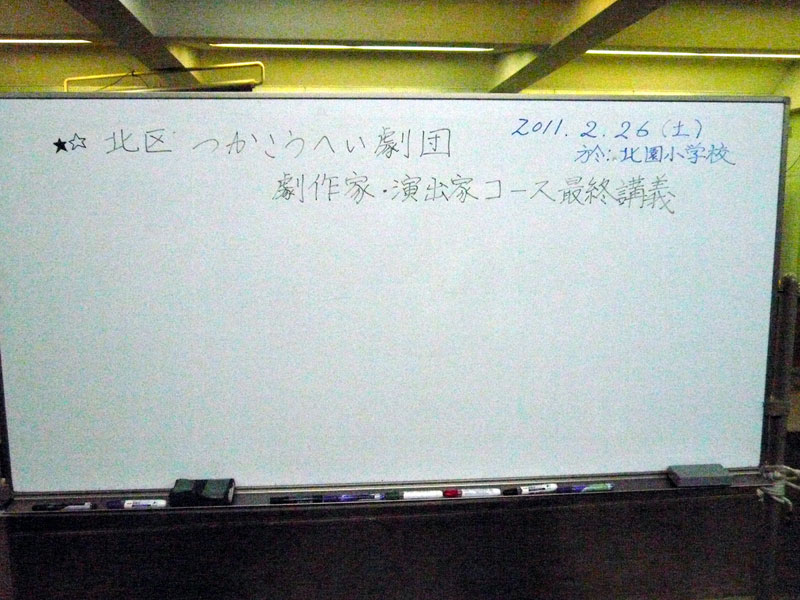 ★☆ 北区 つかこうへい劇団
2011. 2. 26 (土)
於: 北園小学校
劇作家・演出家コース最終講義